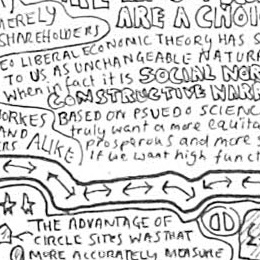 ARE A CHOI
MERELY
SHAREHOLDERS
EO LIBERAL ECONOMIC THEORY HAS S
TO US AS UNCHANGEABLE NATURA
When in fact it is SOCIAL NOR
CONSTRUCTIVE NARR
BASED ON PSUEDO SCIENC
ORKES
AND
RS ALIKE
truly want a more equita
prosperous and more s
if we want high funct
THE ADVANTAGE OF
CIRCLE SITES WAS THAT
MORE ACCURATELY MEASURE